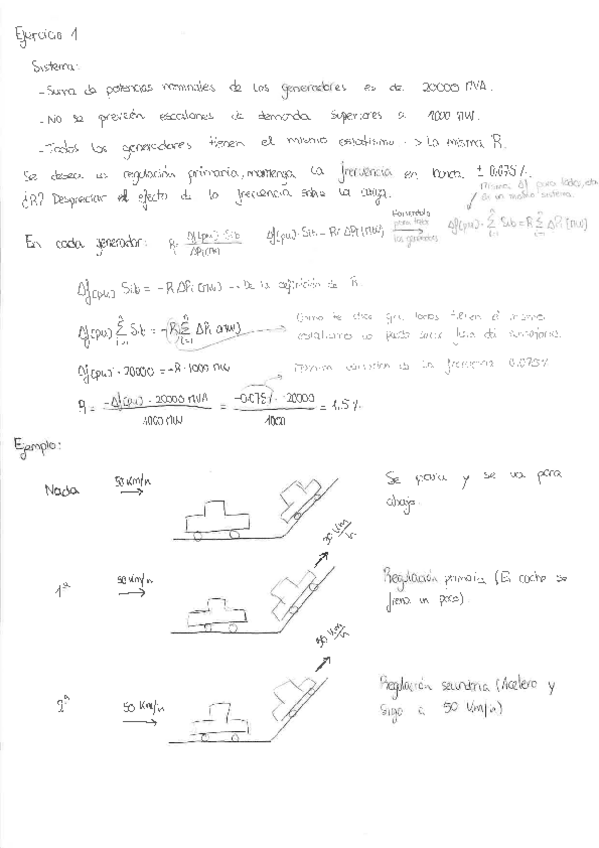 Ejercicio 1
Sistema:
- Suma de potencias nominales de los generadores es de 20000 MVA.
- No se prevén escalones de demanda superiores a 1000 MW.
- Todos los generadores tienen el mismo estatismo -> La misma R.
Se desea regulación primaria, mantenga la frecuencia en banda ± 0.075%.
¿R? Despreciar el efecto de la frecuencia sobre la carga.
Mismo Δf para todos, en un mismo sistema.
En cada generador: Ri = Δf(pu)·Sib / ΔPi(MW) Δf(pu)·Sib = Ri ΔPi(MW) para todos los generadores Δf(pu)·Σ Sib = R Σ ΔPi(MW)
Δf(pu) Sib = -R ΔPi(MW) -- De la definición de R.
Δf(pu) Σ Sib = -R Σ ΔPi(MW) Como te dice que todos tienen el mismo
estatismo lo puedo sacar fuera del sumatorio.
Δf(pu) · 20000 = -R · 1000 MW Máxima variación en la frecuencia 0.075%
R = -Δf(pu) · 20000 MVA / 1000 MW = -0.075% · 20000 / 1000 = 1.5%
Ejemplo:
Nada 50 Km/h Se para y se va para
abajo.
30 Km/h
1ª 50 Km/h Regulación primaria (El coche se
frena un poco).
50 Km/h
2ª 50 Km/h Regulación secundaria (Acelero y
sigo a 50 Km/h)